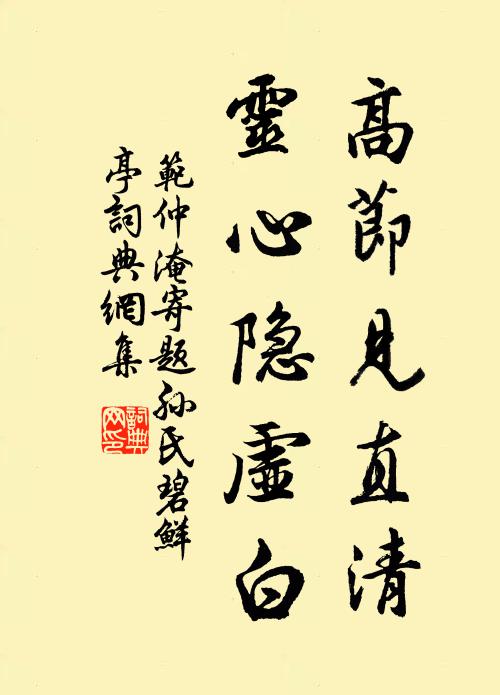 高節見直清
靈心隐虛白
範仲淹寄題孫氏碧鮮
亭詞典網集
詞典
网印